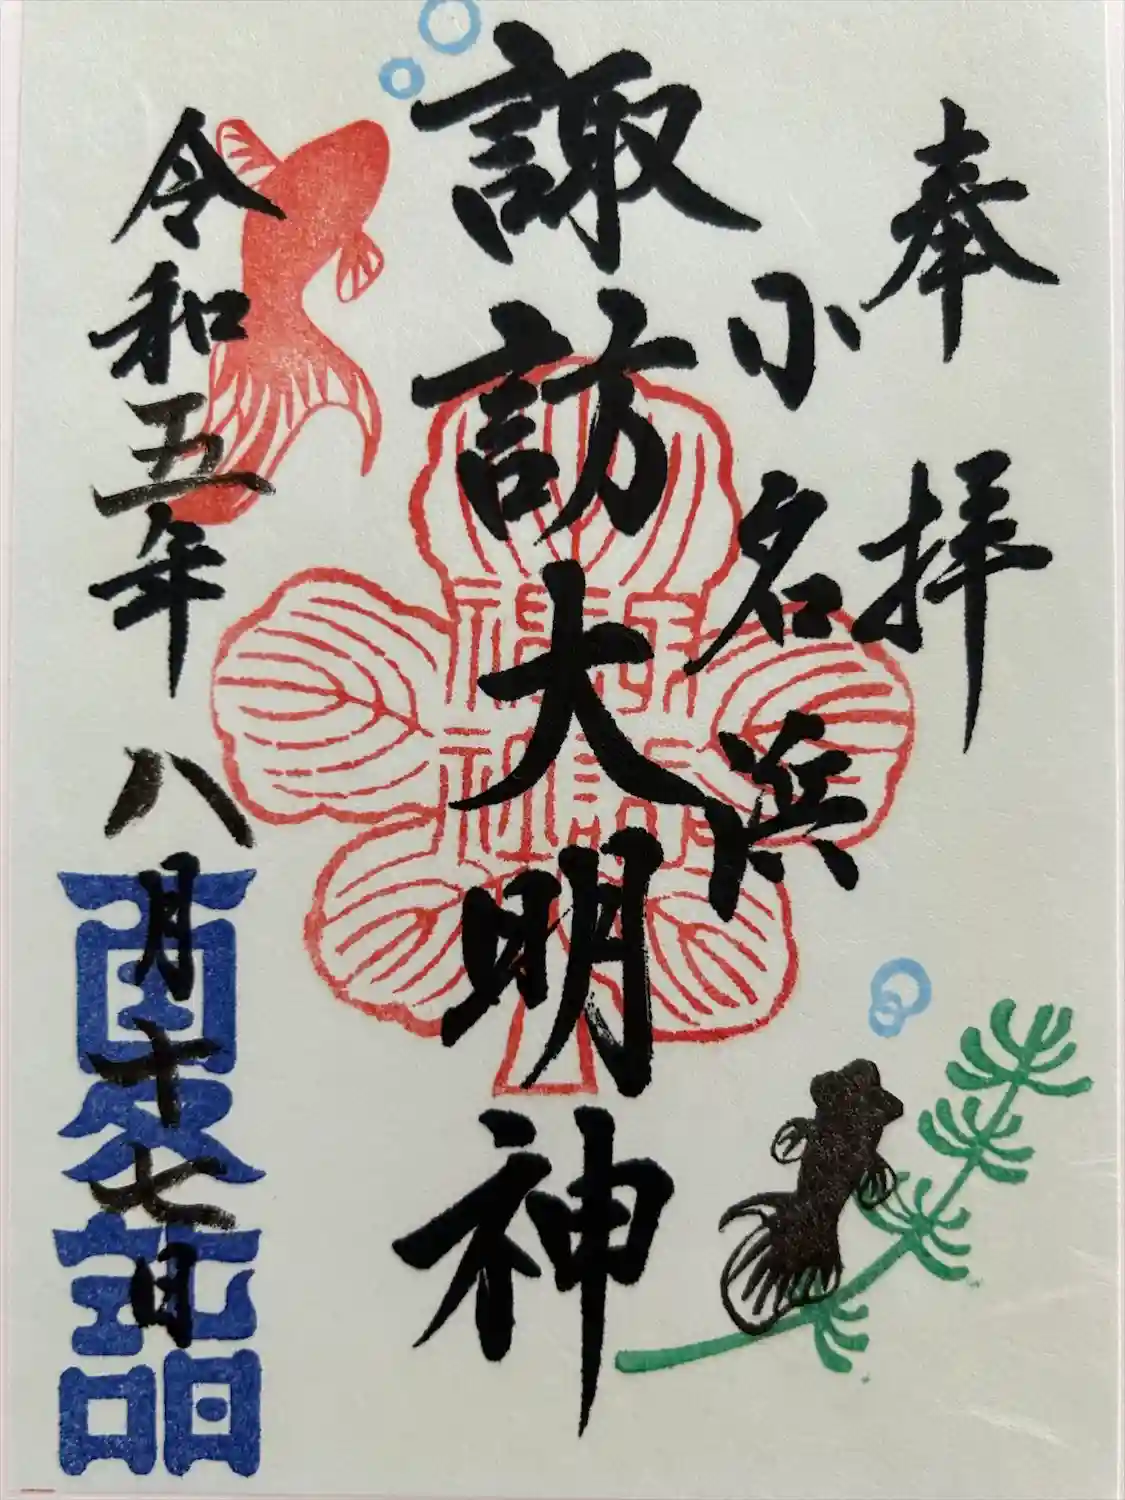 奉拝
小名浜
諏訪大明神
令和五年八月十七日
夏詣